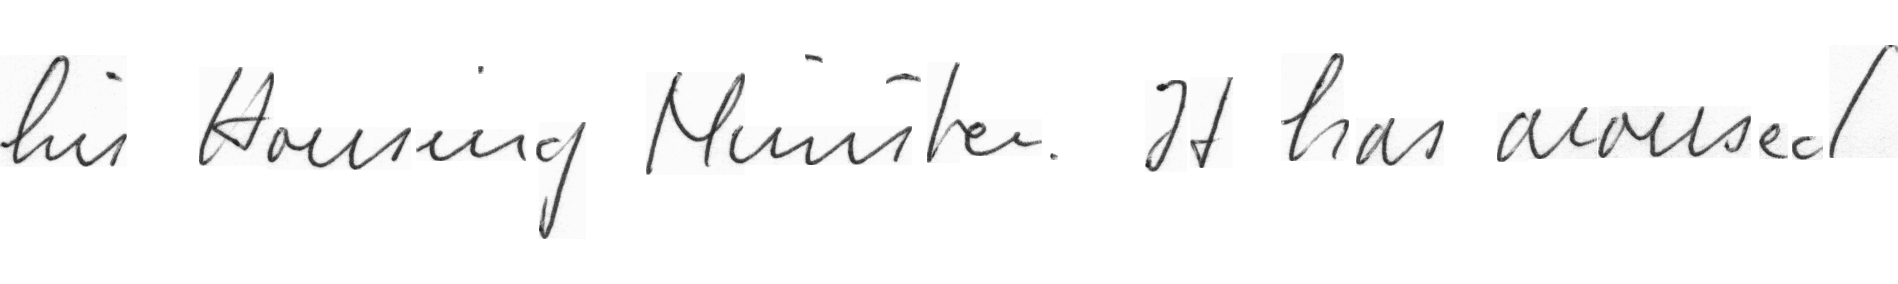 his Housing Minister. It has aroused